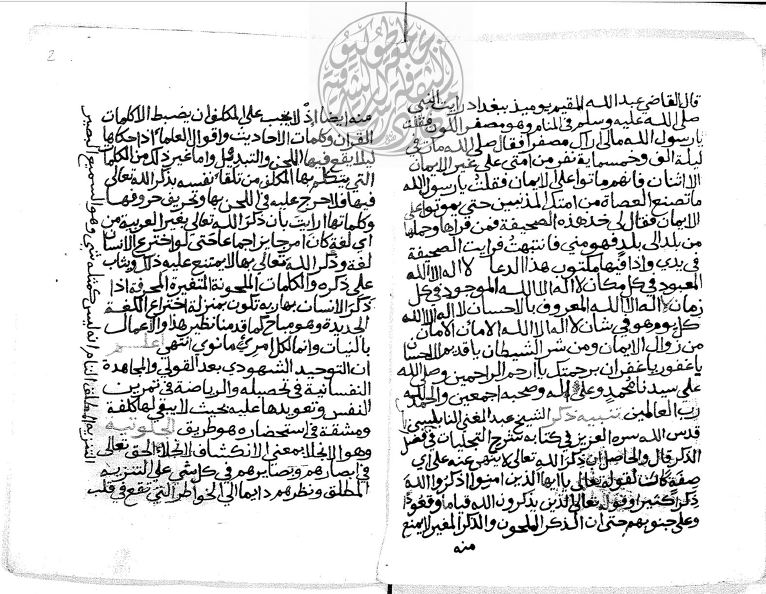 قال القاضي عبد الله المقيم يوميذ ببغداد رايت النبي
صلى الله عليه وسلم في المنام وهو مصفر اللون فقلت
يا رسول الله مالي اراك مصفرا فقال صلى الله مات في
ليلة الف وخمسماية نفر من امتي على غير الايمان
الا اثنان فانهم ماتوا على الايمان فقلت يا رسول الله
ما تصنع العصاة من امتك المذنبين حتى يموتوا على
الايمان فقال لي خذ هذه الصحيفة فمن قراها وحملها
من بلد الى بلد فهو مني فانتبهت فرايت الصحيفة
في يدي واذا فيها مكتوب هذا الدعا لا اله الا الله
المعبود في كل مكان لا اله الا الله الموجود في كل
زمان لا اله الا الله المعروف بالاحسان لا اله الا الله
كل يوم هو في شان لا اله الا الله الامان الامان
من زوال الايمان ومن شر الشيطان يا قديم الاحسا
يا غفور يا غفران برحمتك يا ارحم الراحمين وصلى الله
على سيدنا محمد وعلى اله وصحبه اجمعين والحمد لله
رب العالمين تنبيه ذكر الشيخ عبد الغني النابلسي
قدس الله سره العزيز في كتابه شرح التجليات في فضل
الذكر قال والحاصل ان ذكر الله تعالى لا ينهى عنه على اي
صفة كانت لقوله تعالى يا ايها الذين امنوا اذكروا الله
ذكرا كثيرا وقوله تعالى الذين يذكرون الله قياما وقعودا
وعلى جنوبهم حتى ان الذكر الملحون والذكر المغير لا يمنع
منه
2
منه ايضا اذ لا يجب على المكلف ان يضبط الا كلمات
القران وكلمات الاحاديث واقوال العلما اذا حكاها
ليلا يقع فيها اللحن والتبديل واما غير ذلك من الكلما
التي يتكلم بها المكلف من تلقا نفسه بذكر الله تعالى
فيها فلا حرج عليه في اللحن بها وتحريف حروفها
وكلماتها ارايت بان ذكر الله تعالى بغير العربية من
اي لغة كان امر جايز اجماعا حتى لو اخترع الانسان
لغة وذكر الله تعالى بها لا يمتنع عليه ذلك ويثاب
على ذكره والكلمات الملحونة المتغيرة المحرفة اذا
ذكر الانسان بها ربه تكون بمنزلة اختراع اللغة
الجديدة وهو مباح كما قدمنا نظير هذا والاعمال
بالنيات وانما لكل امرئ ما نوى انتهى اعلم
ان التوحيد الشهودي بعد القولي والمجاهدة
النفسانية في تحصيله والرياضة في تمرين
النفس وتعويدها عليه بحيث لا يبقى لها كلفة
ومشقة في استحضاره هو طريق الخلوتية
وهو الانجلا بمعنى الانكشاف انجلا الحق تعالى
في ابصارهم وبصايرهم في كل شي على التنزيه
المطلق ونظرهم دايما الى الخواطر التي تقع في قلب
التنزيه المطلق التام انه ليس كمثله شي وهو السميع البصير